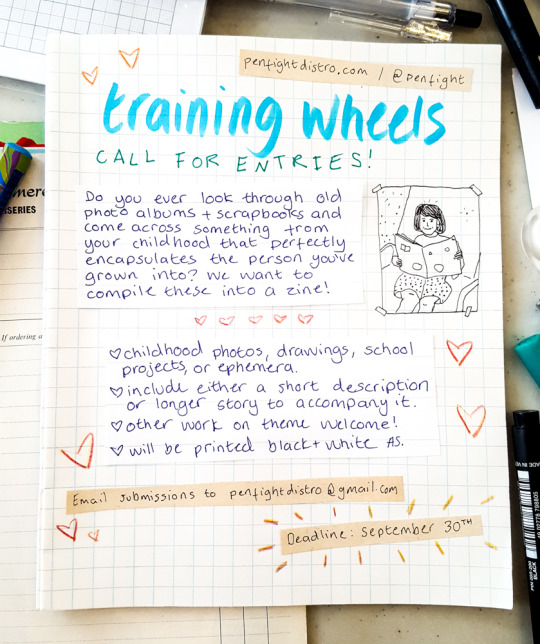 penfightdistro.com / @penfight
training wheels
CALL FOR ENTRIES!
Do you ever look through old
photo albums + scrapbooks and
come across something from
your childhood that perfectly
encapsulates the person you've
grown into? We want to
compile these into a zine!
♡ childhood photos, drawings, school
projects, or ephemera.
♡ include either a short description
or longer story to accompany it.
♡ other work on theme welcome!
♡ will be printed black + white A5.
Email submissions to penfightdistro@gmail.com
Deadline: September 30TH
If ordering a
BLACK